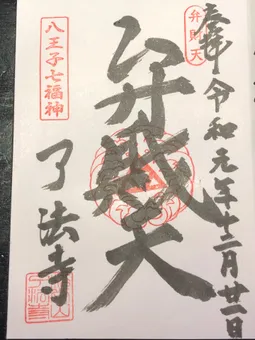 弁財天
奉拝
令和元年十二月廿一日
弁財天
八王子七福神
了法寺